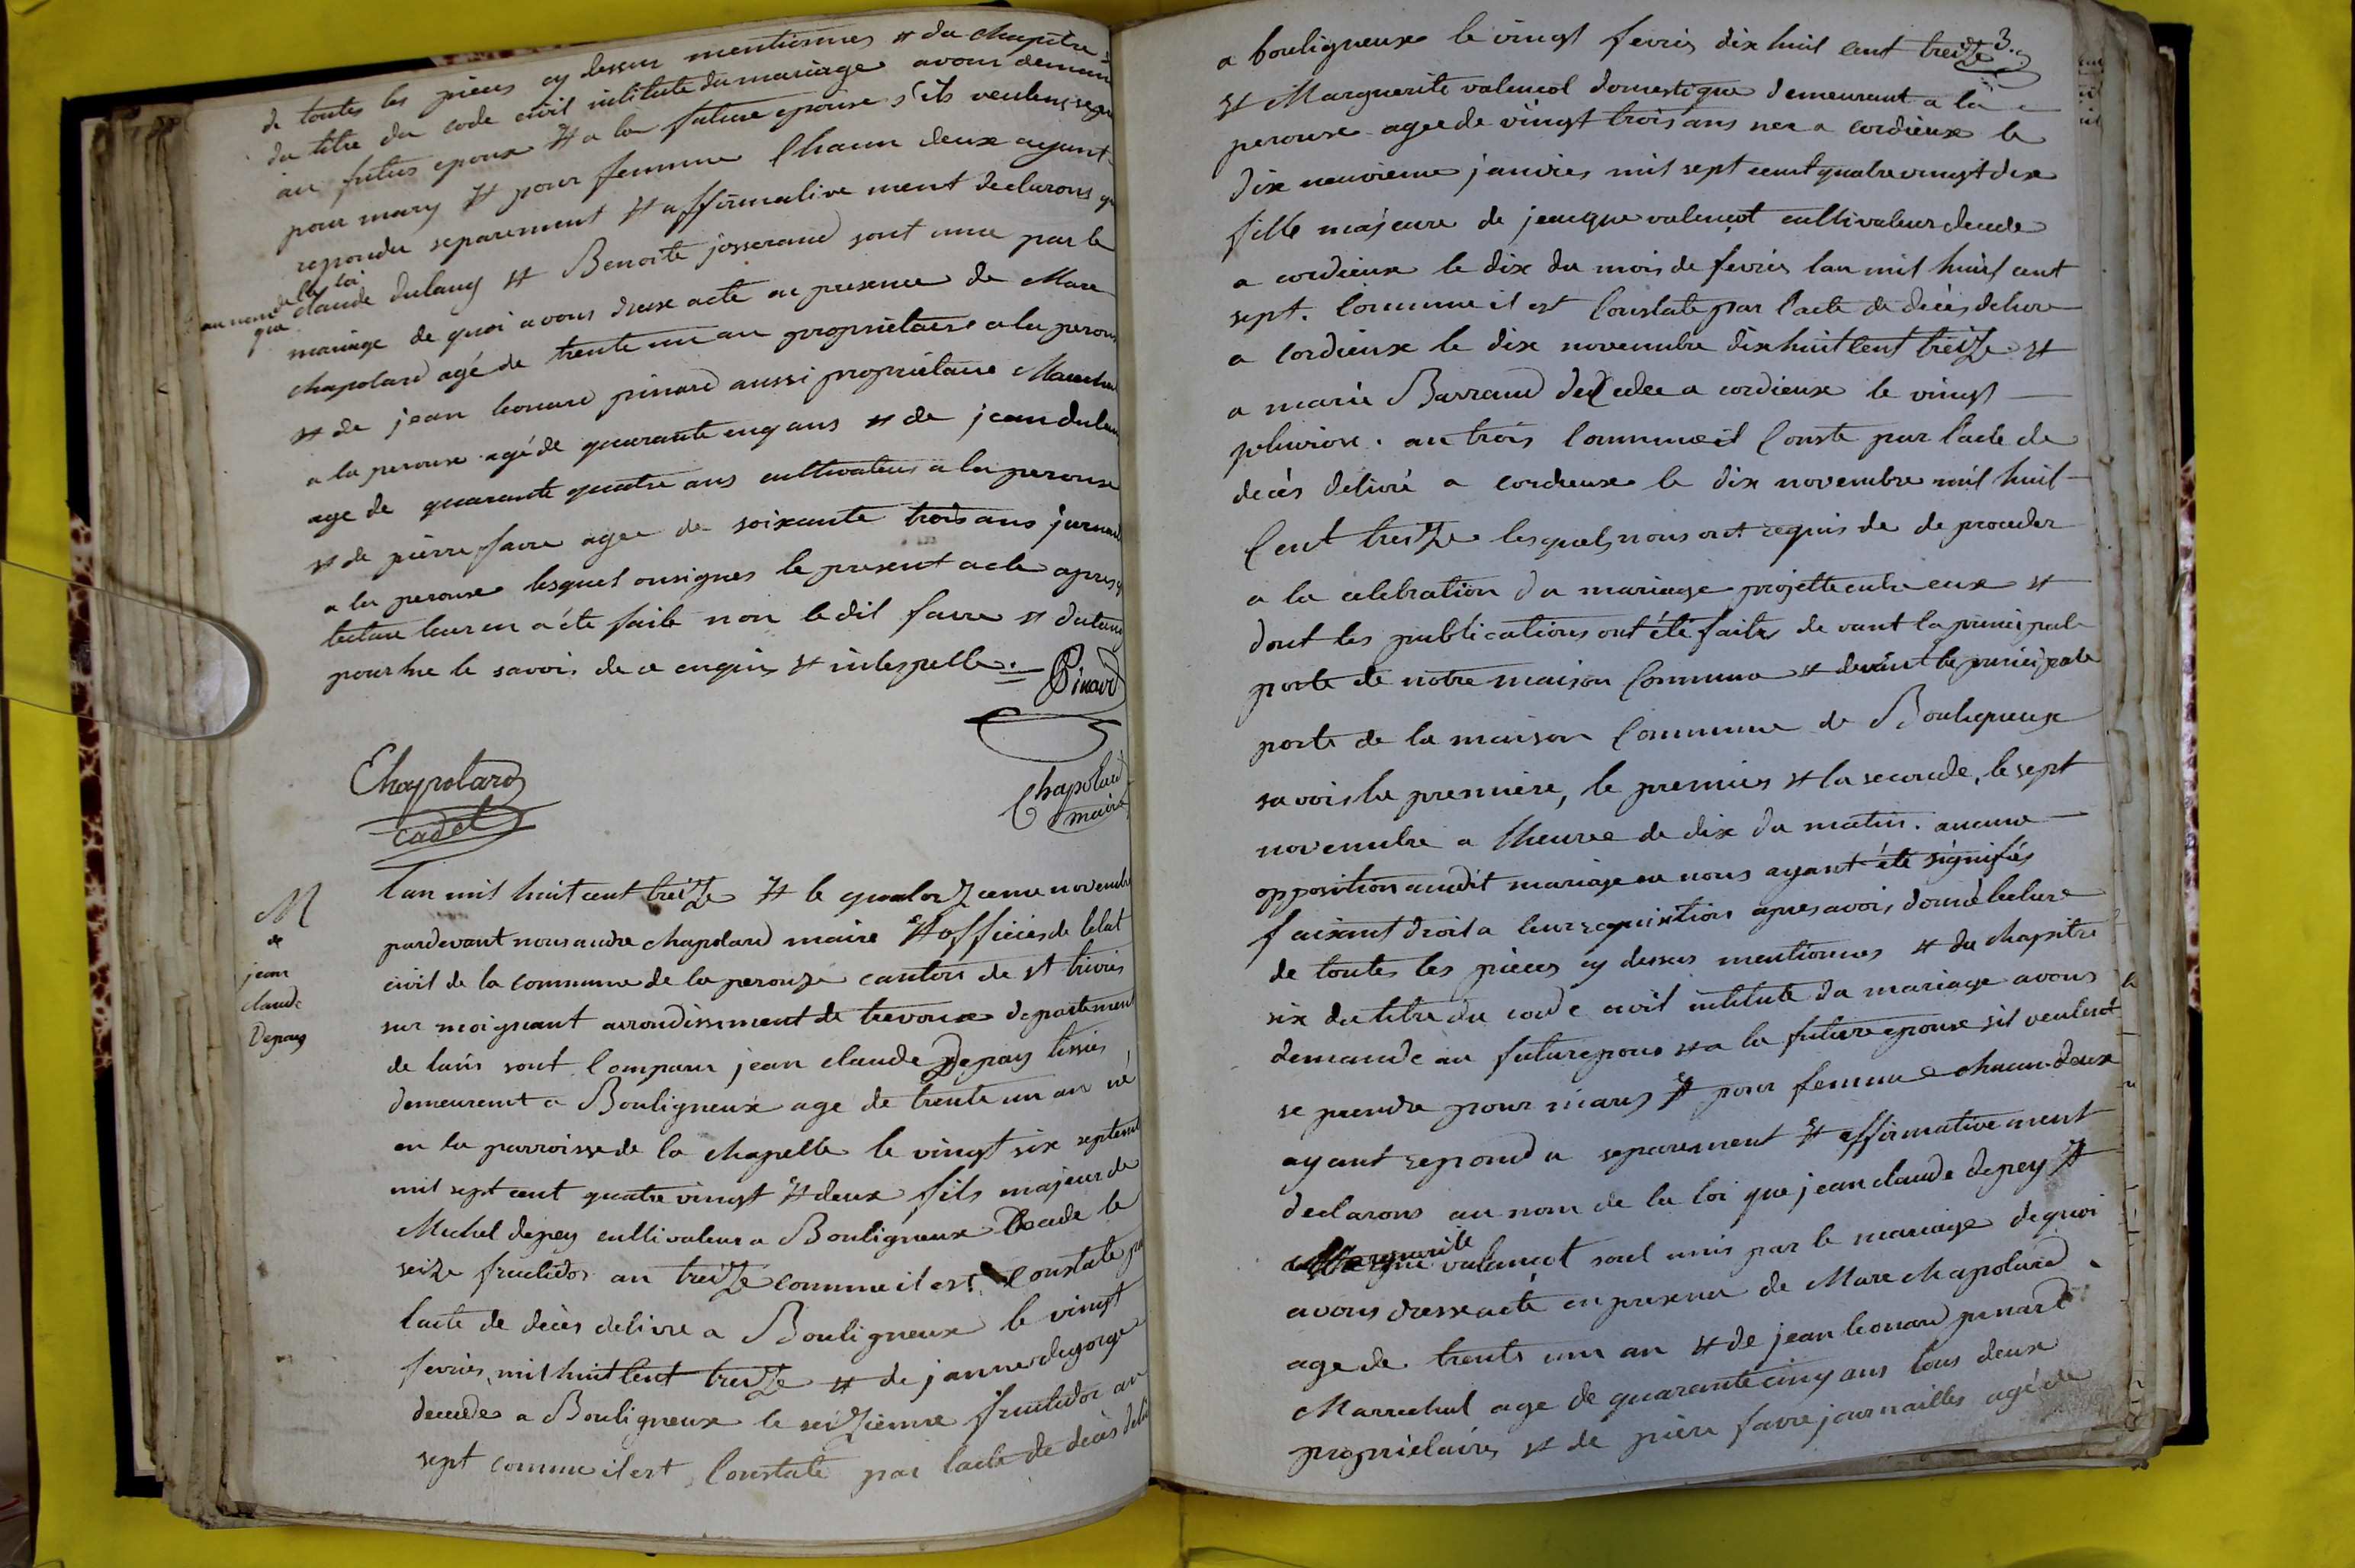 de toutes les pieces cy dessus mentionnes et du chapitre
du titre du code civil intitule du mariage avons deman
au futur epoux et a la future epouse s'ils veulent se
pour mary et pour femme Chacun deux ayant
repondu separement et affirmativement declarons
au nom de la loi
que Claude dulany et Benoite josserand sont unie par le
mariage de quoi avons dresse acte en presence de Marc
chapolard agé de trente un an proprietaire a la perou
et de jean leonard pinard aussi proprietaire Marechal
a la perouse agé de quarante cinq ans et de jean
age de quarante quatre ans cultivateur a la perouse
et de pierre favre agee de soixante trois ans
a la perouse lesquel ont signes le present acte apres
lecture leur en a ete faite non ledit favre et
pour ne le savoir de ce enquis et interpelle.
Pinard
Chapolard
cadet
Chapolard
maire
M
de
jean
claude
Depay
Lan mil huit cent treize et le quatorzeme novembre
pardevant nous andre chapolard maire et officier de letat
civil de la commune de la perouse canton de st trivier
sur moignant arrondissement de trevoux departement
de lain sont Comparu jean claude Depay tissier
demeurent a Bouligneux age de trente un an né
en la parroisse de la chapelle le vingt six septem
mil sept cent quatre vingt et deux fils majeur de
Michel depey cultivateur a Bouligneux Decede le
seize fructidor an treize comme il est Constate
lacte de décès delivre a Bouligneux le vingt
fevrier mil huit Cent treize et de janne degorge
decedee a Bouligneux le seizieme fructidor an
sept comme il est Constate par lacte de décès
3.
a bouligneux le vingt fevrier dix huit cent treize
et Marguerite valencot domestique demeurant a la
perouse agee de vingt trois ans nee a cordieux le
dix neuvieme janvier mil sept cent quatre vingt dix
fille majeure de jacque valencot cultivateur decede
a cordieux le dix du mois de fevrier lan mil huit cent
sept. Comme il est Constate par l'acte de décès delivre
a Cordieux le dix novembre dix huit Cent treize et
a marie Barraud decedee a cordieux le vingt
pluviose. an trois Comme il Conste par l'acte de
decès delivré a cordieux le dix novembre mil huit
Cent treize lesquels nous ont requis de de proceder
a la celebration du mariage projette entre eux et
dont les publications ont été faites devant la principale
porte de notre maison Commune et devant la principale
porte de la maison Commune de Bouligneux
savoir la premiere, le premier et la seconde, le sept
novembre a lheure de dix du matin. aucune
opposition audit mariage ne nous ayant été signifiés
faisant droit a leur requisition apres avoir donné lecture
de toutes les pieces cy dessus mentionnes et du chapitre
six du titre du code civil intitule du mariage avons
demande au futur epous et a la future epouse sil veulent
se prendre pour mary et pour femme chacun deux
ayant repondu separement et affirmativement
declarons au nom de la loi que jean claude depey et
Marguerite
valencot sont unis par le mariage de quoi
avons dresse acte en presence de Marc chapolard
age de trente un an et de jean leonard pinard
Marrechal age de quarante cinq ans tous deux
proprietaires et de piere favre journailler agé de